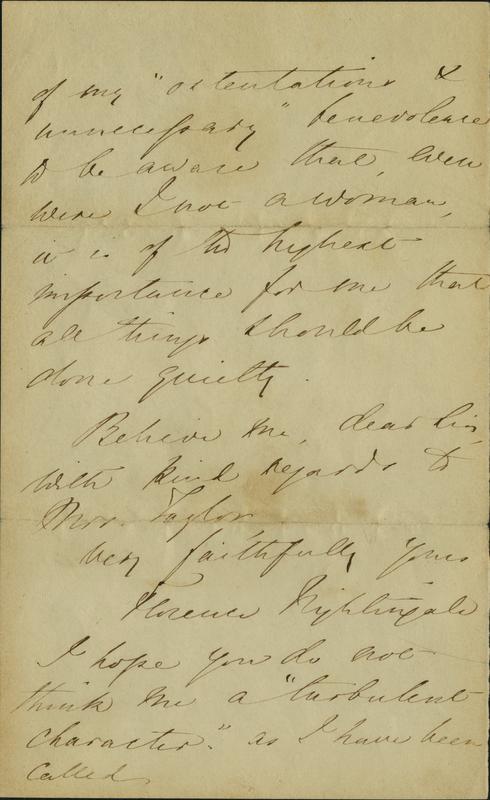 of my "ostentations &
unnecessary" benevolence
to be aware that, even
were I not a woman,
it is of the highest
importance for me that
all things should be
done quietly.
Believe me, dear Sir,
with kind regards to
Mrs. Taylor
very faithfully yours
Florence Nightingale
I hope you do not
think me a "turbulent
character." as I have been
called